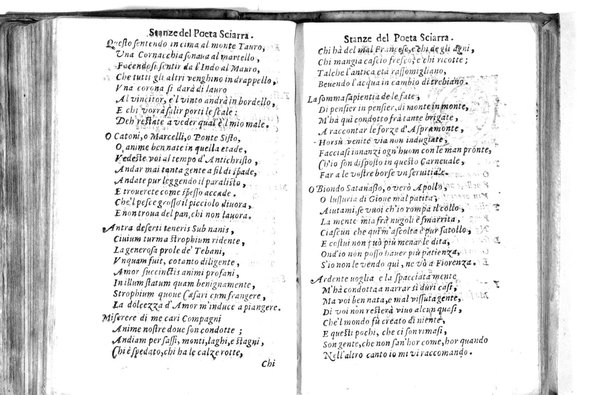 Stanze del Poeta Sciarra.
Questo sentendo in cima al monte Tauro,
Una Cornacchia sonava al martello,
Facendosi sentir da l'Indo al Mauro,
Che tutti gli altri venghino in drappello,
Vna corona si darà di lauro
Al vincitor, e'l vinto andrà in bordello,
E chi vorrà salir porti le scale:
Deh restate à veder qual è'l mio male.
O Catoni, o Marcelli, o Ponte Sisto,
O anime bennate in quella etade,
Vedeste voi al tempo d'Antichristo,
Andar mai tanta gente a fil di spade,
Andate pur leggendo il paralisto,
E trouerete come spesso accade.
Che'l pesce grosso il picciolo diuora,
E non troua del pan, chi non lauora.
Antra deserti teneris Sub nanis,
Ciuium turma strophium ridente,
La generosa prole de' Tebani,
Vnquam fuit, cotanto diligente,
Amor succinctis animi profani,
In illum statum quam benignamente,
Strophium quoue Casari cum frangere,
La dolcezza d'Amor m'induce a piangere.
Miserere di me cari Compagni
Anime nostre doue son condotte;
Andiam per sassi, monti, laghi, e stagni,
Chi è spedato, chi ha le calze rotte,
Chi
Stanze del Poeta Sciarra.
Chi hà del mal Francese, e chi de gli
Chi mangia cascio fresco, e chi ricotte;
Talche l'antica età rassomigliano,
Beuendo l'acqua in cambio di trebiano.
La somma sapientia de le fate,
Di pensier in pensier, di monte in monte,
M'hà qui condotto frà tante brigate,
A raccontar le forze d'Aspramonte,
Horsù venite via non indugiate;
Facciasi innanzi ogn'huom con le man pronte,
Ch'io son disposto in questo Carneuale,
Far a le vostre borse un seruitiale.
O Biondo Satanasso, o verò Apollo,
O lussuria di Gioue mal patita,
Aiutami se vuoi ch'io rompa il collo,
La mente mia frà nugoli è smarrita,
Ciascun che quem'ascolta è pur satollo,
E costui non può più menar le dita,
Ond'io non posso hauer più patienza,
S'io non le vendo qui, ne vò a Fiorenza.
Ardente voglia e la spacciatamente
M'hà condotto a narrar sì duri casi,
Ma voi ben nata, e mal vissuta gente,
Di voi non resterà viuo alcun quasi,
Che'l mondo fù creato di niente,
E questi pochi, che ci son rimasi,
Son gente, che non san'hor come, hor quando
Nell'altro canto io mi vi raccomando.